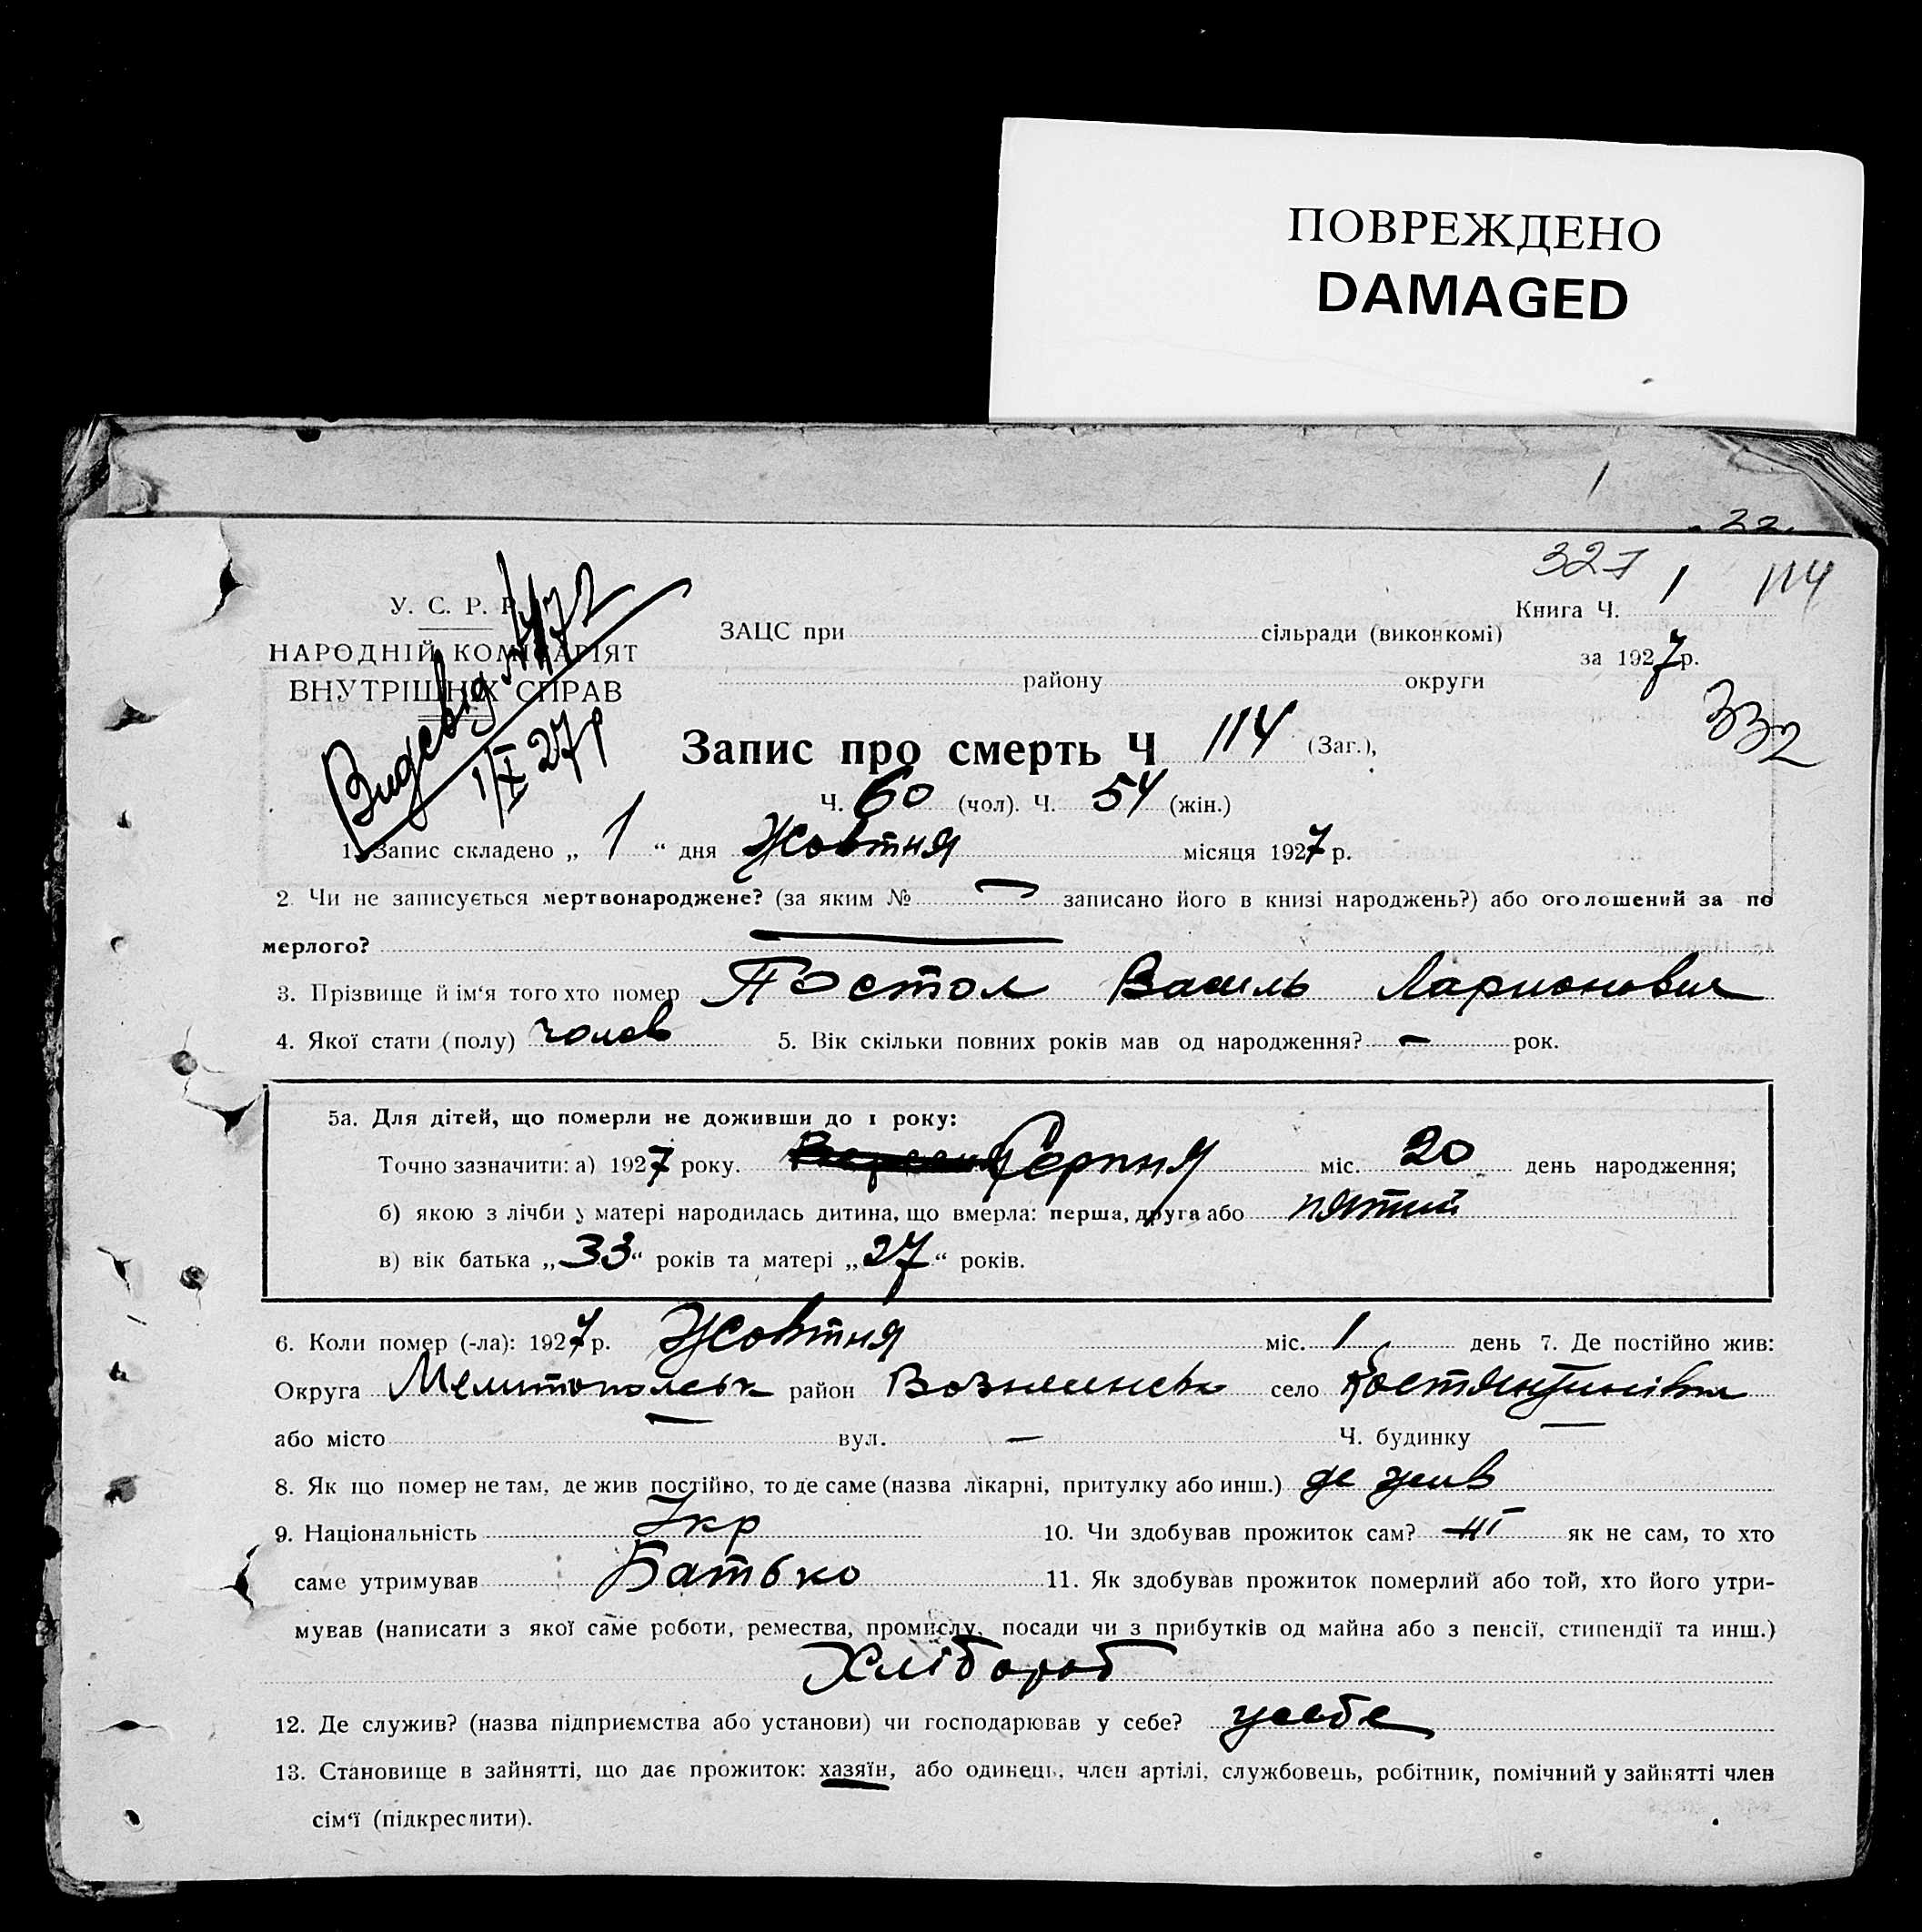 ПОВРЕЖДЕНО
DAMAGED
1
327
114
Книга Ч. 1
за 1927 р.
332
У. С. Р. Р.
НАРОДНІЙ КОМІСАРІЯТ
ВНУТРІШНІХ СПРАВ
1/X 27 р
ЗАЦС при сільради (виконкомі)
району округи
Запис про смерть Ч 114 (Заг.),
Ч. 60 (чол). Ч. 54 (жін.)
1. Запис складено „ 1 “ дня Жовтня місяця 1927 р.
2. Чи не записується мертвонароджене? (за яким № — записано його в книзі народжень?) або оголошений за по
мерлого? —
3. Прізвище й ім‘я того хто помер Постол Василь Ларионович
4. Якої стати (полу) чолов 5. Вік скільки повних років мав од народження? — рок.
5а. Для дітей, що померли не доживши до 1 року:
Точно зазначити: а) 1927 року. Серпня міс. 20 день народження;
б) якою з лічби у матері народилась дитина, що вмерла: перша, друга або пятий
в) вік батька „33“ років та матері „27“ років.
6. Коли помер (-ла): 1927 р. Жовтня міс. 1 день 7. Де постійно жив:
Округа Мелитопольськ район Вознесенськ село Костянтинівка
або місто — вул. — Ч. будинку —
8. Як що помер не там, де жив постійно, то де саме (назва лікарні, притулку або инш.) де жив
9. Національність Укр 10. Чи здобував прожиток сам? ні як не сам, то хто
саме утримував Батько 11. Як здобував прожиток померлий або той, хто його утри-
мував (написати з якої саме роботи, ремества, промислу, посади чи з прибутків од майна або з пенсії, стипендії та инш.)
Хлібороб
12. Де служив? (назва підприємства або установи) чи господарював у себе? усебе
13. Становище в зайнятті, що дає прожиток: хазяїн, або одинець, член артілі, службовець, робітник, помічний у зайнятті член
сім‘ї (підкреслити).